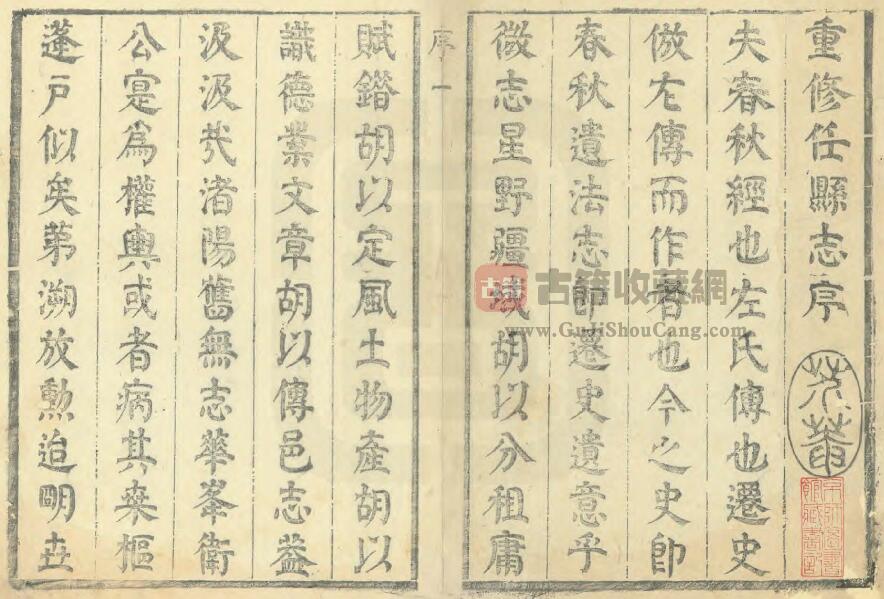 重修任縣志序
夫春秋經也左氏傳也遷史
倣左傳而作者也今之史即
春秋遺法志即遷史遺意乎
微志星野疆域胡以分租庸
序 一
賦鐕胡以定風土物產胡以
識德業文章胡以傳邑志蓋
汲汲㢤渚陽舊無志華峯衛
公寔爲權輿或者病其柴樞
蓬戶似矣苐溯放勲迨明
古籍 古籍收藏網
www.GujiShouCang.com